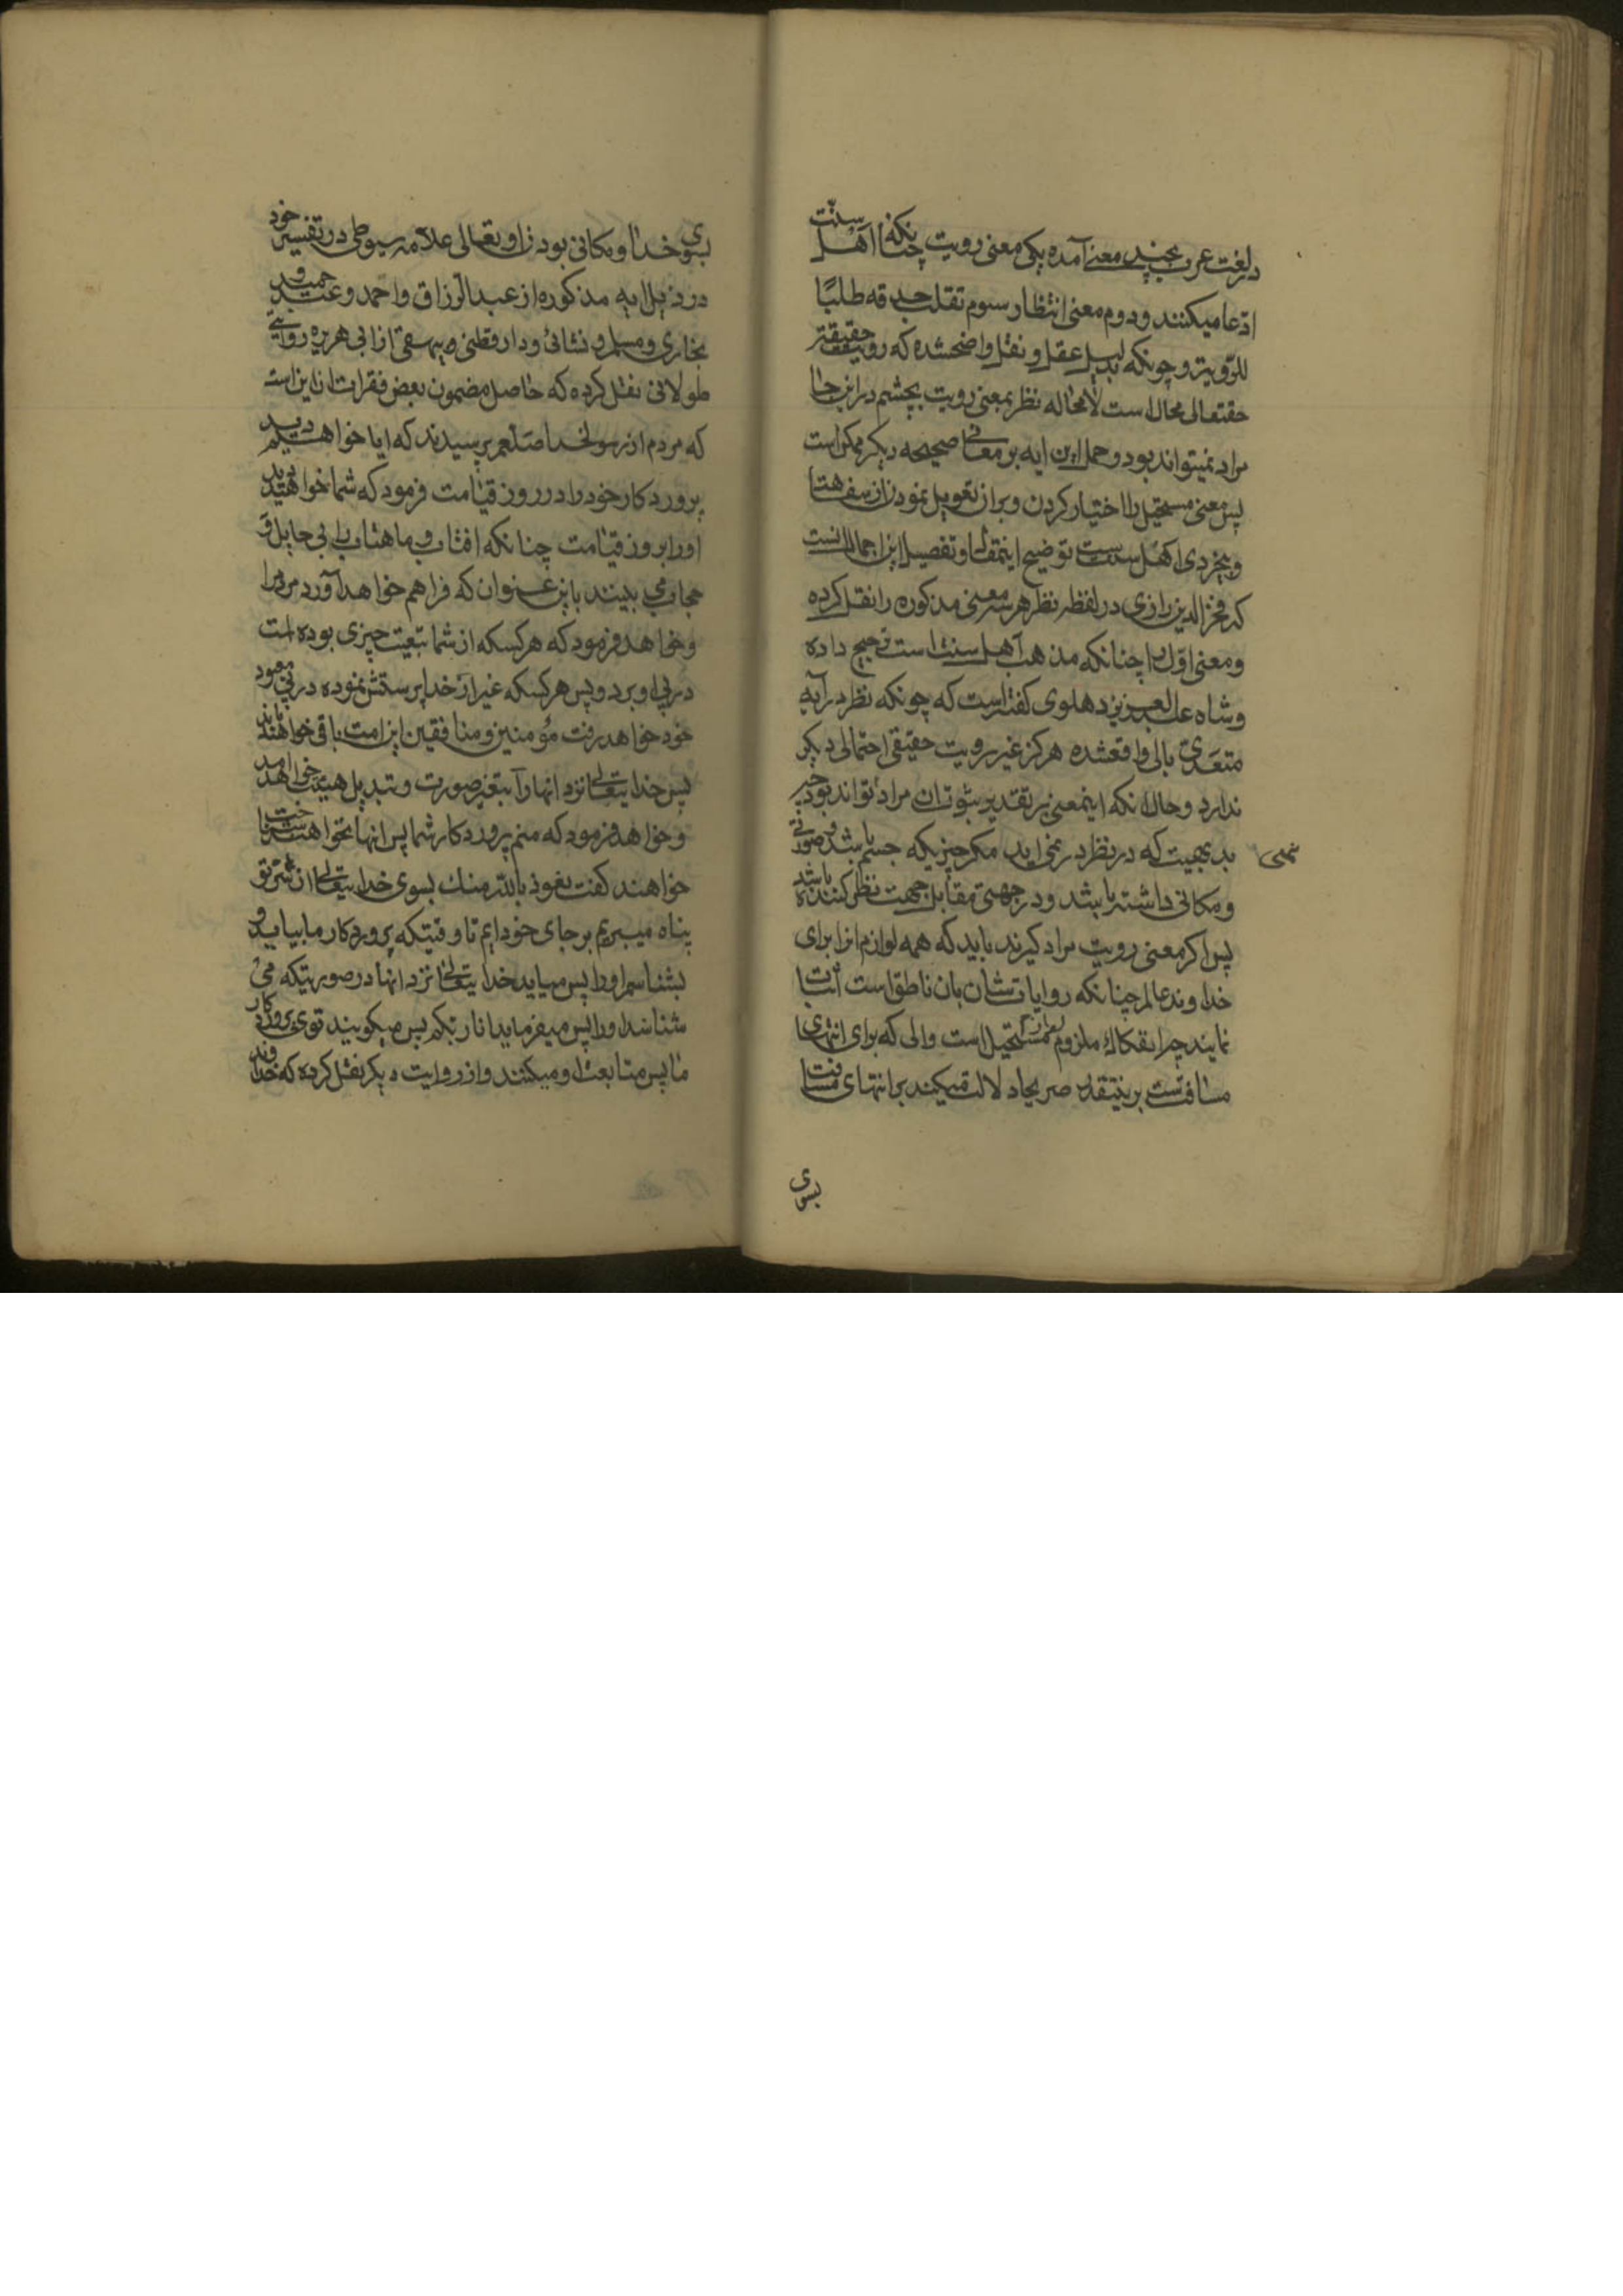 در لغت عرب بچند معنی آمده یکی معنی رویت چنانکه اهل سنّت
ادّعا میکنند و دوم معنی انتظار سوم تقلب حدقه طلبًا
للرّویة و چونکه بدلیل عقل و نقل واضحشده که رویت حقیقة
حقتعالی محال است لامحاله نظر بمعنی رویت بچشم در اینجا
مراد نمیتواند بود و حمل این ایه بر معانی صحیحه دیگر ممکن است
پس معنی مستحیل را اختیار کردن و بران تعویل نمودن از سفاهت
و بیخردی اهل سنت است توضیح اینمقال و تفصیل این اجمال انست
که فخر الدین رازی در لفظ نظر هر سه معنی مذکوره را نقل کرده
و معنی اوّل را چنانکه مذهب اهل سنت است ترجیح داده
و شاه عبد العزیز دهلوی گفته است که چونکه نظر در آیه
متعدّی بالی واقعشده هرگز غیر رویت حقیقی احتمالی دیگر
ندارد و حال انکه اینمعنی بر تقدیر ثبوت ان مراد نتواند بود چه
بدیهیست که در نظر در نمی اید مگر چیزیکه جسم باشد و صورتی
و مکانی داشته باشد و در جهتی مقابل جهت نظر کننده باشد
پس اگر معنی رویت مراد گیرند باید که همه لوازم انرا برای
خداوند عالم چنانکه روایات شان بان ناطق است اثبات
نمایند چرا انفکاک ملزوم از لازم مستحیل است و الی که برای انتهای
مسافت است برینتقدیر صریحا دلالت میکند بر انتهای مسافت
بسوی
بسوی خدا و مکانی بودن او تعالی علامه سیوطی در تفسیر خود
در ذیل ایه مذکوره از عبد الرزاق و احمد و عبد حمید و
بخاری و مسلم و نسائی و دارقطنی و بیهقی از ابی هریره روایتی
طولانی نقل کرده که حاصل مضمون بعض فقرات ان این است
که مردم از رسولخدا صلعم پرسیدند که ایا خواهیم دید
پروردگار خود را در روز قیامت فرمود که شما خواهید دید
او را بروز قیامت چنانکه افتاب و ماهتاب را بی حایل و
حجاب می بینند باین عنوان که فراهم خواهد آورد مردم را
و خواهد فرمود که هر کسکه از شما تبعیت چیزی بوده است
در پی او برود پس هر کسکه غیر از خدا پرستش نموده در پی معبود
خود خواهد رفت مؤمنین و منافقین این امت باقی خواهند ماند
پس خدایتعالی نزد انها را بتغیر صورت و تبدیل هیئت خواهد امد
و خواهد فرمود که منم پروردگار شما پس انها نخواهند شناخت
خواهند گفت نعوذ بالله منک بسوی خدایتعالی از شر تو
پناه میبریم بر جای خود ایم تا وقتیکه پروردگار ما بیاید و
بشناسم او را پس میاید خدایتعالی نزد انها در صورتیکه می
شناسند او را پس میفرماید انا ربکم پس میگویند توی پروردگار
ما پس متابعت او میکنند و از روایت دیگر نقل کرده که خداوند